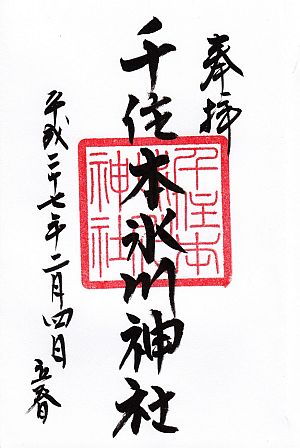 奉拝
千住本氷川神社
千住本
氷川
神社
平成二十七年二月四日 立春